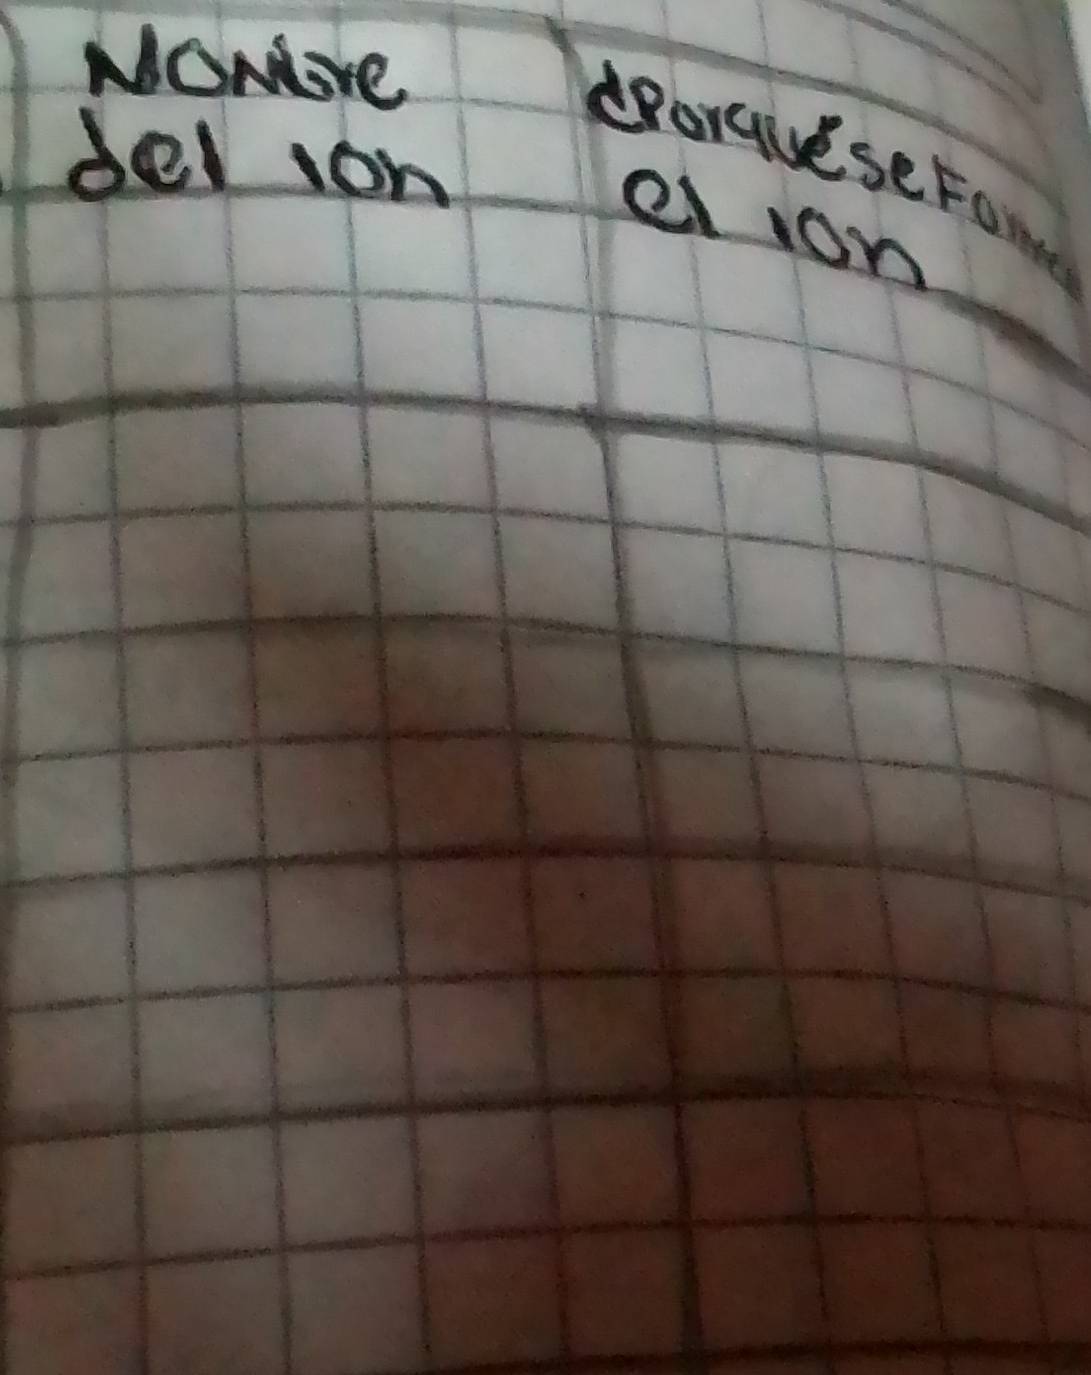 Nombre
del ion
¿Porqué se Forma
el ion